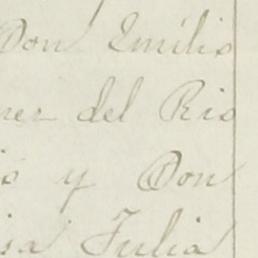 Don Emilio
ner del Rio
o y Don
isa Julia